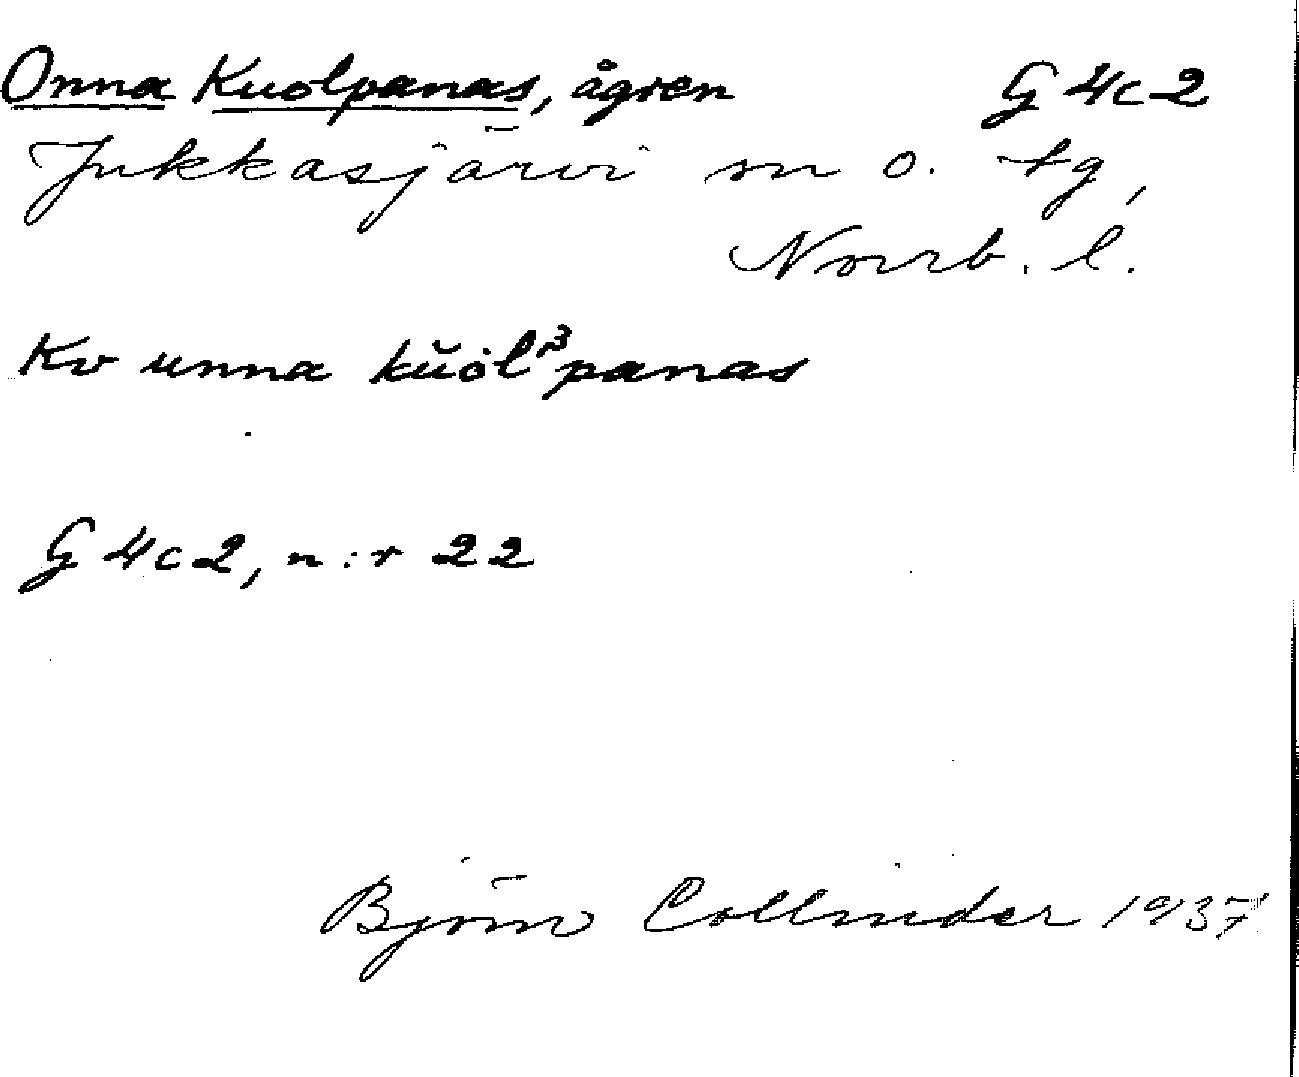 Onna Kuolpanas, ågren G 4c2
Jukkasjärvi sn o. tg,
Norrb. l.
Kv unna kŭȯlᵝpanas
G 4c2, n:r 22
Björn Collinder 1937